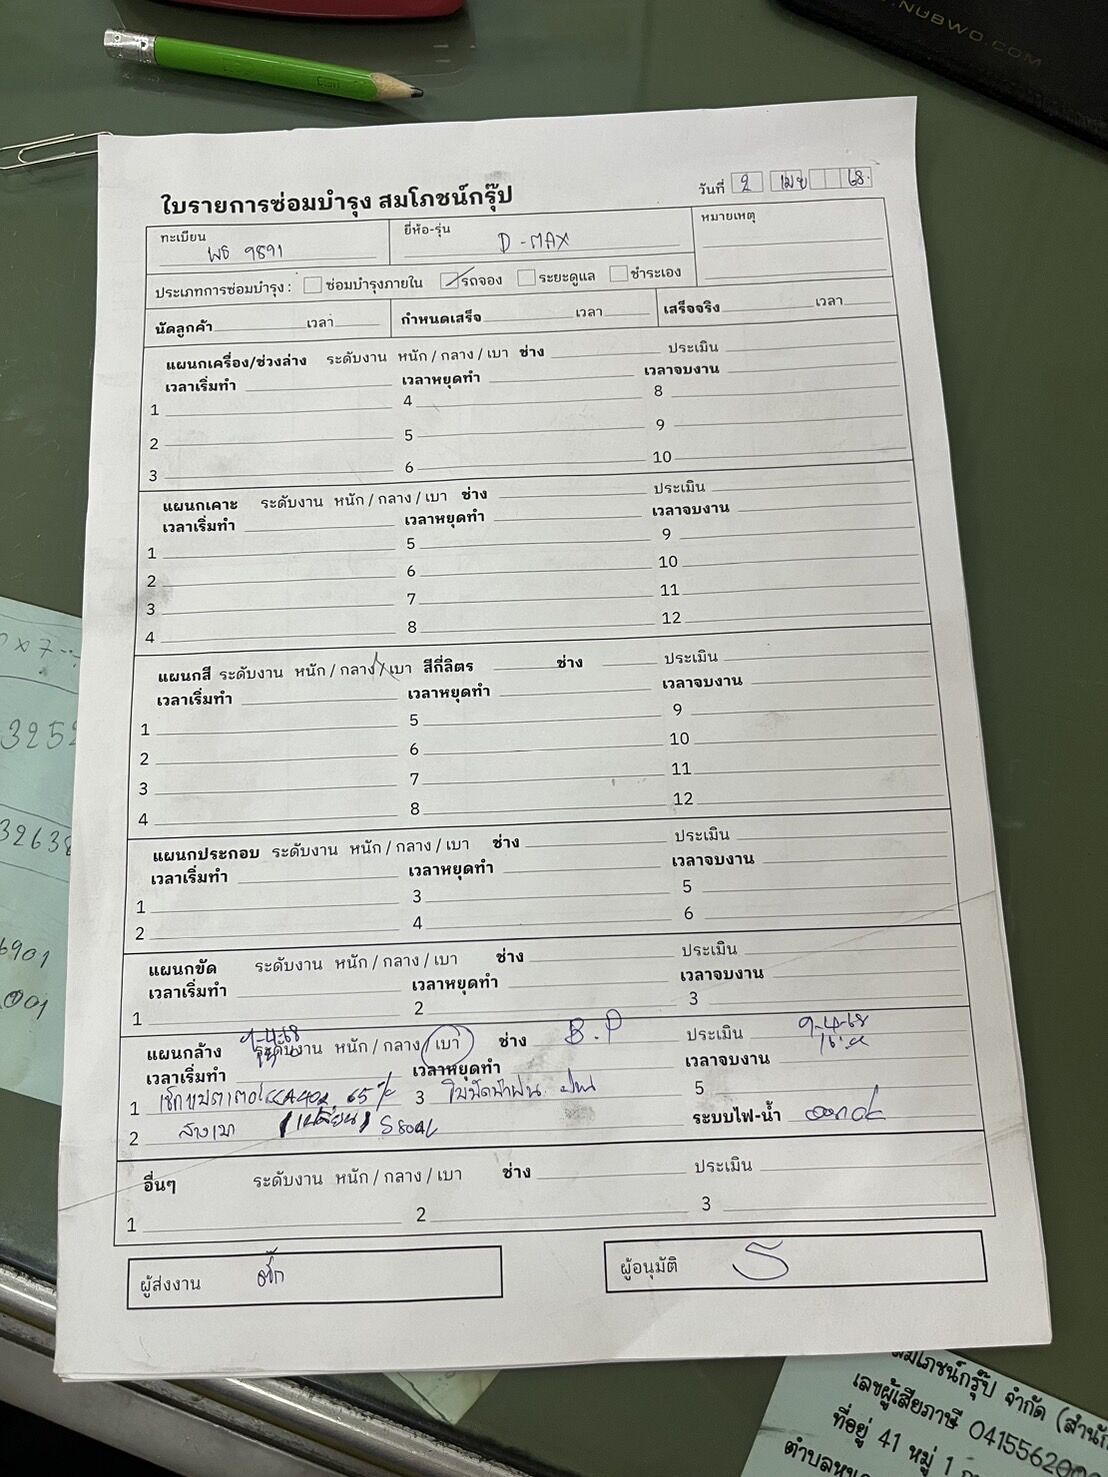 .NUBWO.COM
ใบรายการซ่อมบำรุง สมโภชน์กรุ๊ป
วันที่ 2 เมษ 68.
ทะเบียน ผธ 9891 ยี่ห้อ-รุ่น D-MAX หมายเหตุ
ประเภทการซ่อมบำรุง : ซ่อมบำรุงภายใน รถจอง ระยะดูแล ชำระเอง
นัดลูกค้า เวลา กำหนดเสร็จ เวลา เสร็จจริง เวลา
แผนกเครื่อง/ช่วงล่าง ระดับงาน หนัก / กลาง / เบา ช่าง ประเมิน
เวลาเริ่มทำ เวลาหยุดทำ เวลาจบงาน
1 4 8
2 5 9
3 6 10
แผนกเคาะ ระดับงาน หนัก / กลาง / เบา ช่าง ประเมิน
เวลาเริ่มทำ เวลาหยุดทำ เวลาจบงาน
1 5 9
2 6 10
3 7 11
4 8 12
แผนกสี ระดับงาน หนัก / กลาง / เบา สีกี่ลิตร ช่าง ประเมิน
เวลาเริ่มทำ เวลาหยุดทำ เวลาจบงาน
1 5 9
2 6 10
3 7 11
4 8 12
แผนกประกอบ ระดับงาน หนัก / กลาง / เบา ช่าง ประเมิน
เวลาเริ่มทำ เวลาหยุดทำ เวลาจบงาน
1 3 5
2 4 6
แผนกขัด ระดับงาน หนัก / กลาง / เบา ช่าง ประเมิน
เวลาเริ่มทำ เวลาหยุดทำ เวลาจบงาน
1 2 3
แผนกล้าง ระดับงาน หนัก / กลาง / เบา ช่าง B.P ประเมิน
เวลาเริ่มทำ 9-4-68 เวลาหยุดทำ เวลาจบงาน 9-4-68
1 เช็กแบตเตอรี่ CCA402 65% 3 ใบปัดน้ำฝน 5
2 ล้างเบา (เปลี่ยน) ระบบไฟ-น้ำ
อื่นๆ ระดับงาน หนัก / กลาง / เบา ช่าง ประเมิน
1 2 3
ผู้ส่งงาน ผู้อนุมัติ
32638
6901
สมโภชน์กรุ๊ป จำกัด (สำนัก
เลขผู้เสียภาษี 04155620
ที่อยู่ 41 หมู่ 1